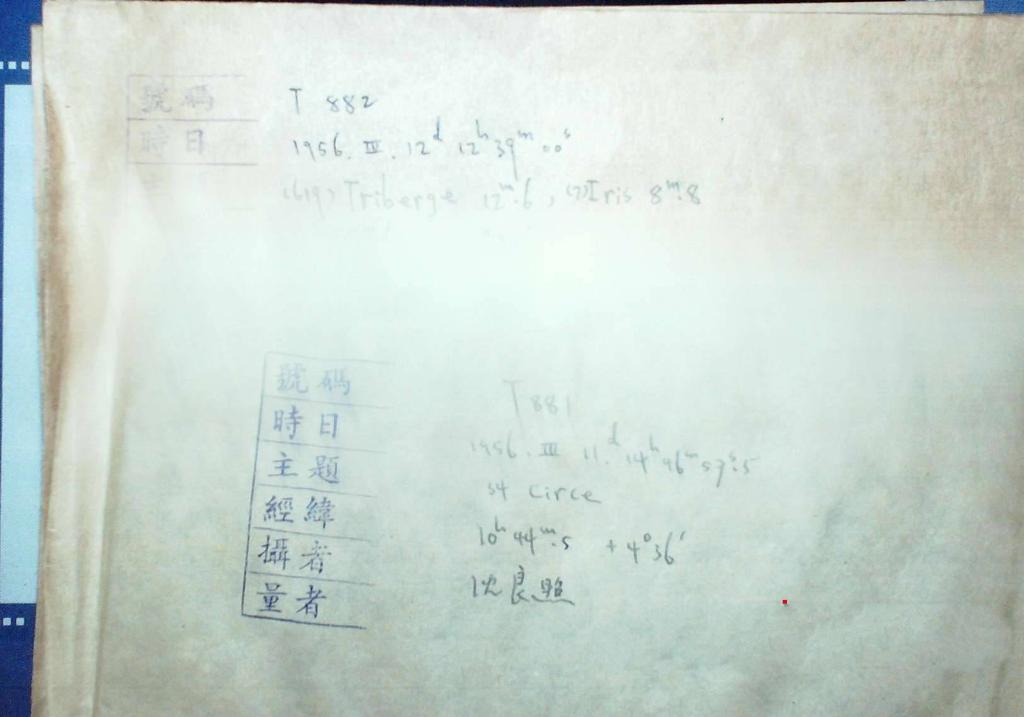 號碼 T 882
時日 1956. III. 12ᵈ 12ʰ 39ᵐ 00ˢ
(619) Triberge 12ᵐ.6, (7)Iris 8ᵐ.8
號碼 T 881
時日 1956. III 11.ᵈ 14ʰ 46ᵐ 57ˢ.5
主題 34 Circe
經緯 10ʰ 44ᵐ.5 +4°36′
攝者 沈良照
量者